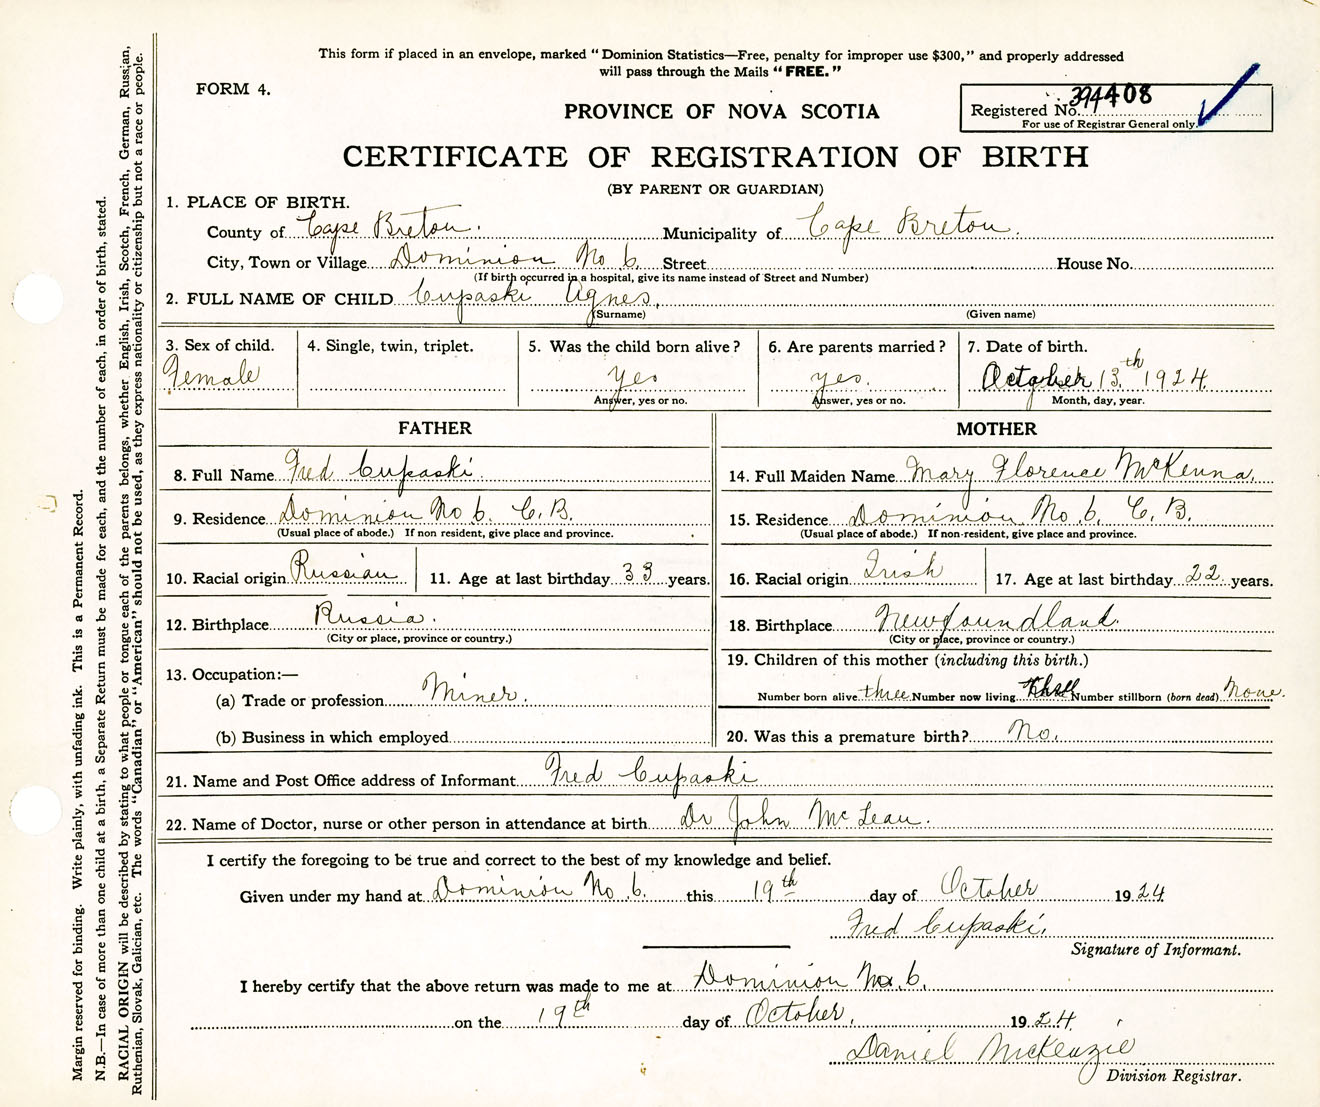 This form if placed in an envelope, marked “Dominion Statistics—Free, penalty for improper use $300,” and properly addressed
will pass through the Mails “FREE.”
FORM 4.
Registered No. 394408
For use of Registrar General only.
PROVINCE OF NOVA SCOTIA
CERTIFICATE OF REGISTRATION OF BIRTH
(BY PARENT OR GUARDIAN)
1. PLACE OF BIRTH.
County of Cape Breton. Municipality of Cape Breton.
City, Town or Village Dominion No 6. Street House No.
(If birth occurred in a hospital, give its name instead of Street and Number)
2. FULL NAME OF CHILD Cupaski Agnes,
(Surname) (Given name)
3. Sex of child. 4. Single, twin, triplet. 5. Was the child born alive? 6. Are parents married? 7. Date of birth.
Female yes yes. October 13th 1924.
Answer, yes or no. Answer, yes or no. Month, day, year.
FATHER MOTHER
8. Full Name Fred Cupaski. 14. Full Maiden Name Mary Florence McKenna.
9. Residence Dominion No 6. C.B. 15. Residence Dominion No. 6. C.B.
(Usual place of abode.) If non resident, give place and province. (Usual place of abode.) If non-resident, give place and province.
10. Racial origin Russian 11. Age at last birthday 33 years. 16. Racial origin Irish 17. Age at last birthday 22 years.
12. Birthplace Russia. 18. Birthplace Newfoundland.
(City or place, province or country.) (City or place, province or country.)
13. Occupation:— 19. Children of this mother (including this birth.)
(a) Trade or profession Miner. Number born alive three Number now living Number stillborn (born dead) None.
(b) Business in which employed 20. Was this a premature birth? No.
21. Name and Post Office address of Informant Fred Cupaski
22. Name of Doctor, nurse or other person in attendance at birth Dr John McLean.
I certify the foregoing to be true and correct to the best of my knowledge and belief.
Given under my hand at Dominion No. 6. this 19th day of October 1924
Fred Cupaski.
Signature of Informant.
I hereby certify that the above return was made to me at Dominion No. 6.
on the 19th day of October, 1924.
Daniel McKenzie
Division Registrar.
Margin reserved for binding. Write plainly, with unfading ink. This is a Permanent Record.
N.B.—In case of more than one child at a birth, a Separate Return must be made for each, and the number of each, in order of birth, stated.
RACIAL ORIGIN will be described by stating to what people or tongue each of the parents belongs, whether English, Irish, Scotch, French, German, Russian,
Ruthenian, Slovak, Galician, etc. The words “Canadian” or “American” should not be used, as they express nationality or citizenship but not a race or people.